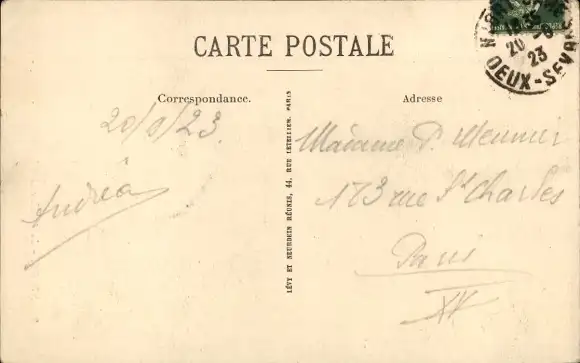 CARTE POSTALE
Correspondance.
20/8/23
Andréa
LÉVY ET NEURDEIN RÉUNIS, 44, RUE LETELLIER, PARIS
Adresse
Madame P. Meunier
173 rue St Charles
Paris
XV
20 -8
23
DEUX-SÈVRES